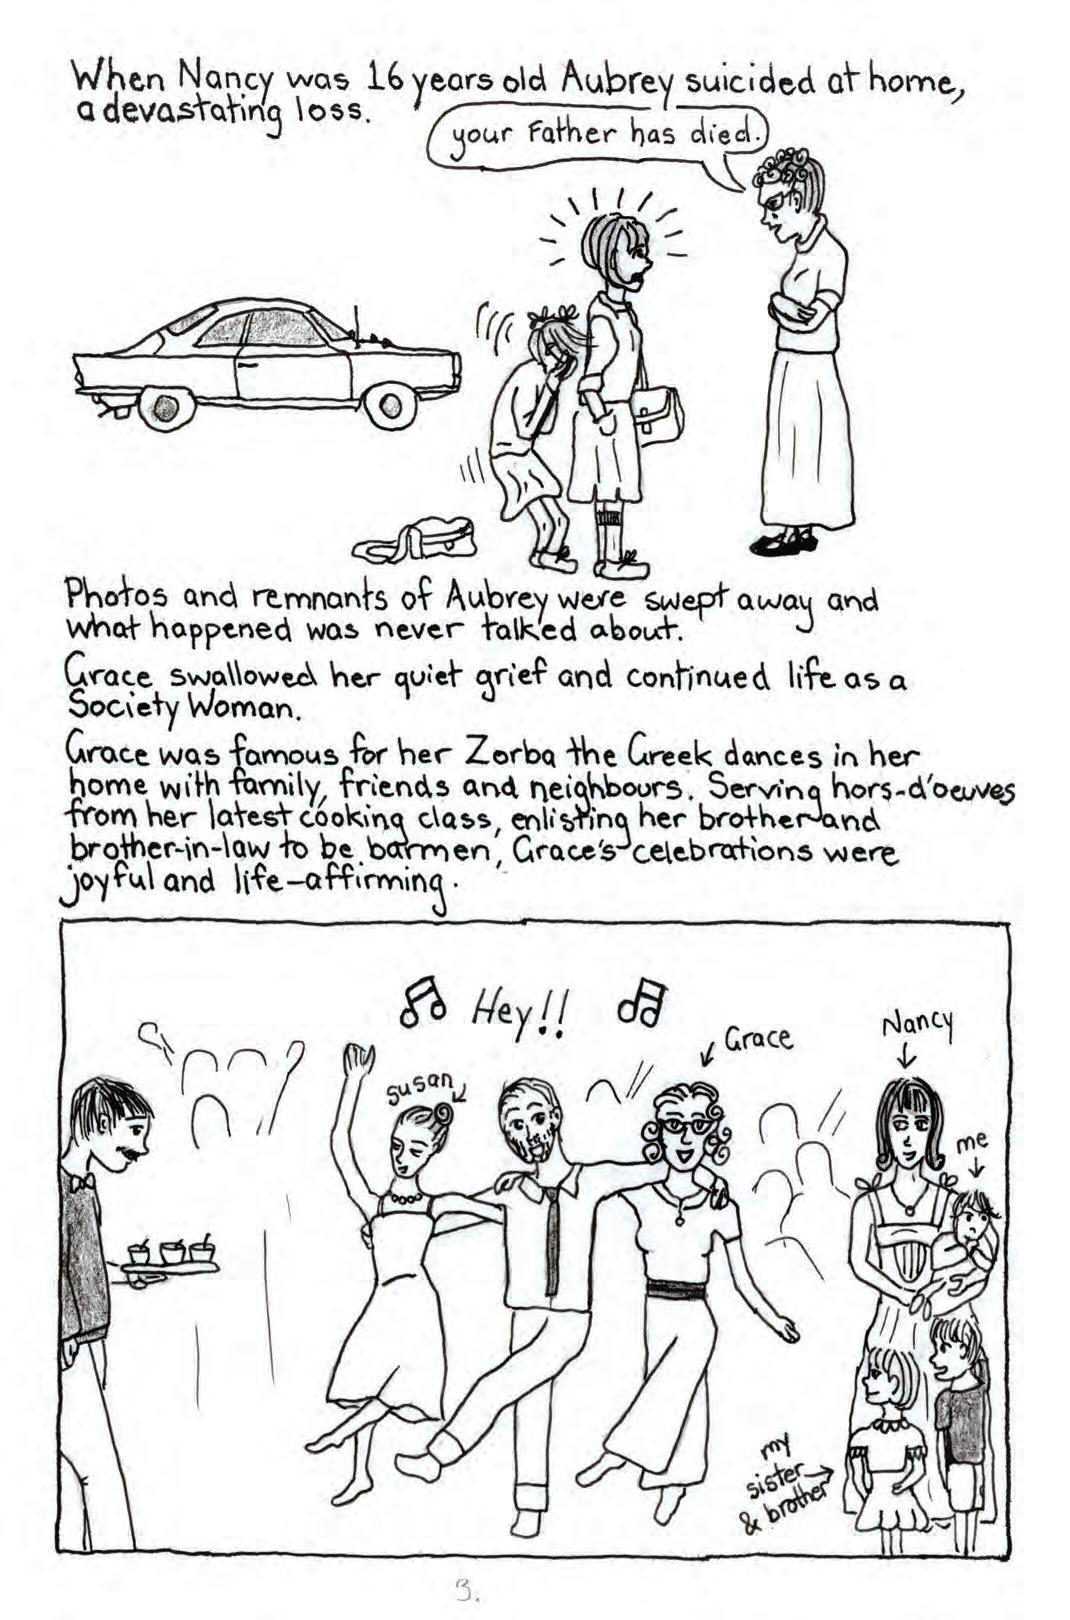 When Nancy was 16 years old Aubrey suicided at home,
a devastating loss.
your Father has died.
Photos and remnants of Aubrey were swept away and
what happened was never talked about.
Grace swallowed her quiet grief and continued life as a
Society Woman.
Grace was famous for her Zorba the Greek dances in her
home with family, friends and neighbours. Serving hors-d'oeuves
from her latest cooking class, enlisting her brother and
brother-in-law to be barmen, Grace's celebrations were
joyful and life-affirming.
Hey!!
Grace
Nancy
susan
me
my
sister
& brother
3.